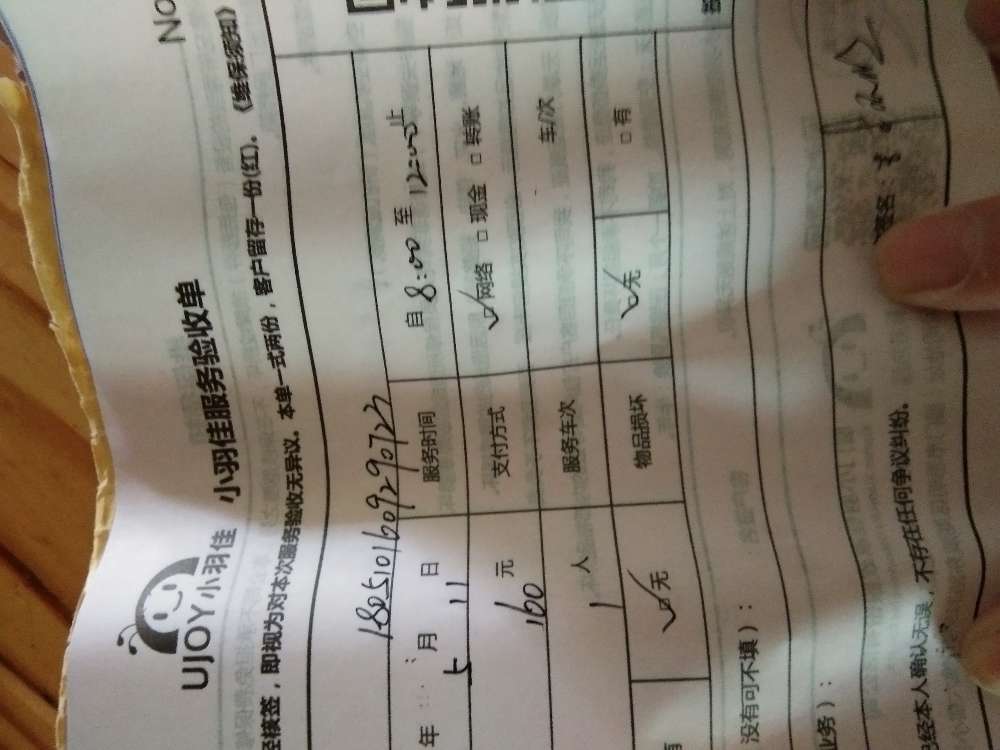 No
UJOY小羽佳 小羽佳服务验收单
经核签，即视为对本次服务验收无异议。本单一式两份，客户留存一份(红)。《维保须知》
180510160929072
年 5 月 11 日 服务时间 自 8:00 至 12:00 止
160 元 支付方式 ☑网络 □现金 □转账
1 人 服务车次 车/次
☑无 物品损坏 ☑无 □有
没有可不填）：
业务）：
签名：
经本人确认无误，不存在任何争议纠纷。